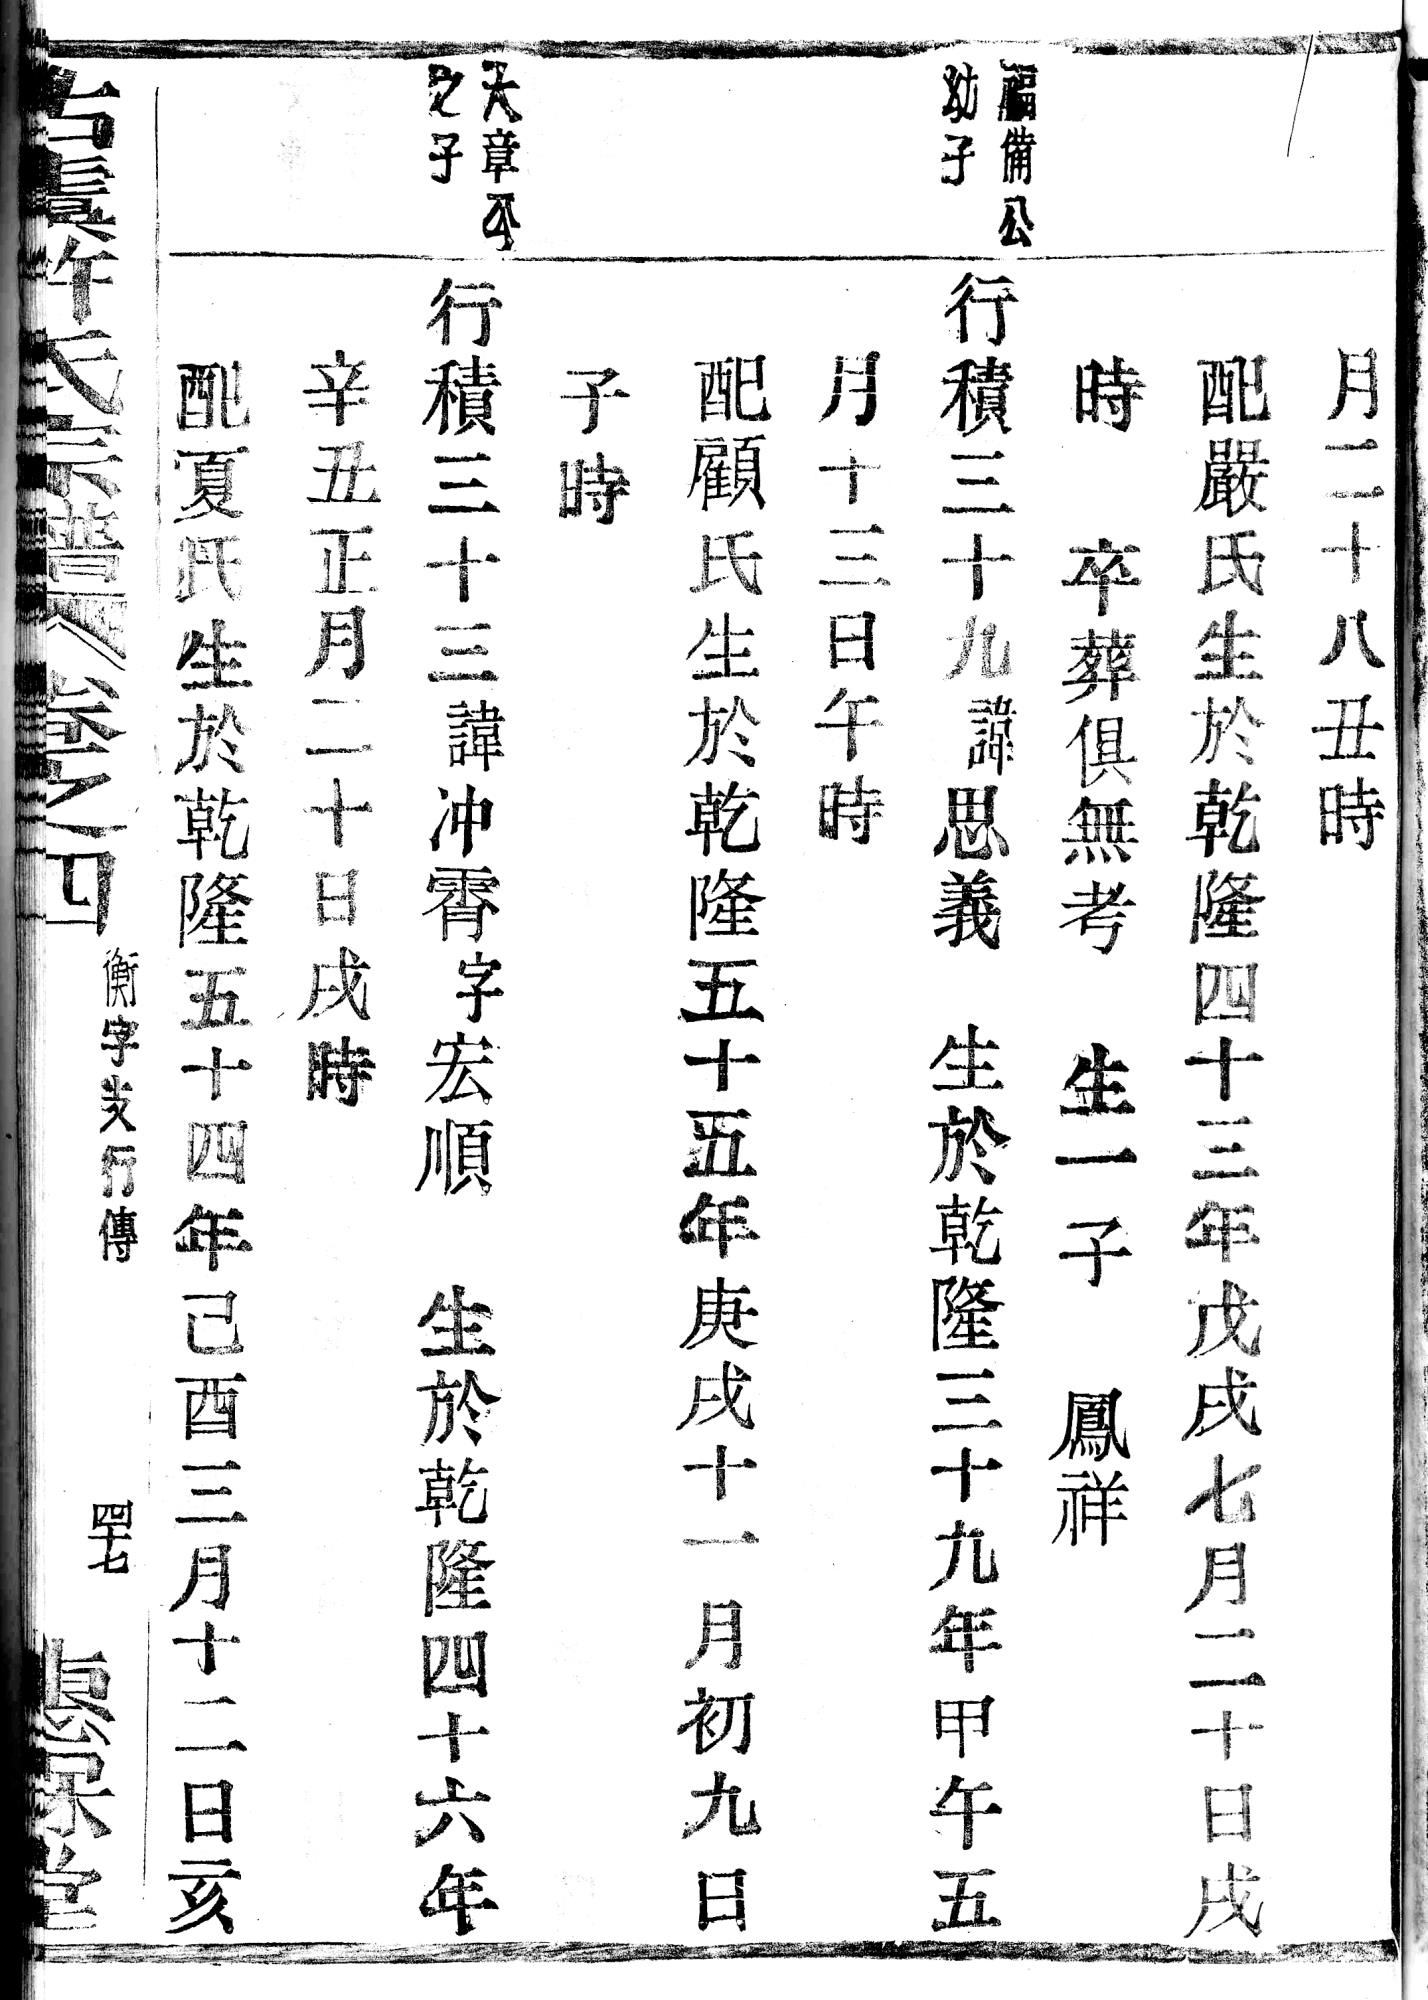 月二十八丑時
配嚴氏生於乾隆四十三年戊戌七月二十日戌
時　卒葬俱無考　生一子　鳳祥
福備公
幼子
行積三十九諱思義　生於乾隆三十九年甲午五
月十三日午時
配顧氏生於乾隆五十五年庚戌十一月初九日
子時
大章公
之子
行積三十三諱冲霄字宏順　生於乾隆四十六年
辛丑正月二十日戌時
配夏氏生於乾隆五十四年己酉三月十二日亥
古虞許氏宗譜　卷之四
衡字支行傳
四十七
堂